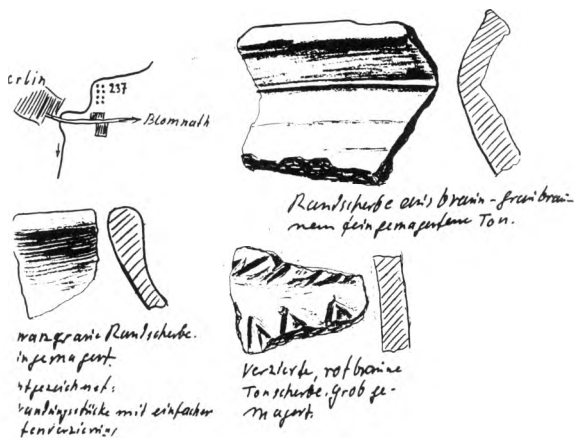 erlin
237
Blomnath
Randscherbe aus braun-graubrau-
nem feingemagertem Ton.
warzgraue Randscherbe.
ingemagert.
tgezeichnet:
wandungsstücke mit einfacher
tenverzierung
Verzierte, rotbraune
Tonscherbe. Grob ge-
magert.